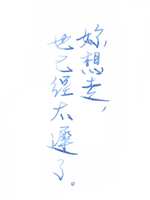 妳想走，
也已經太遲了。